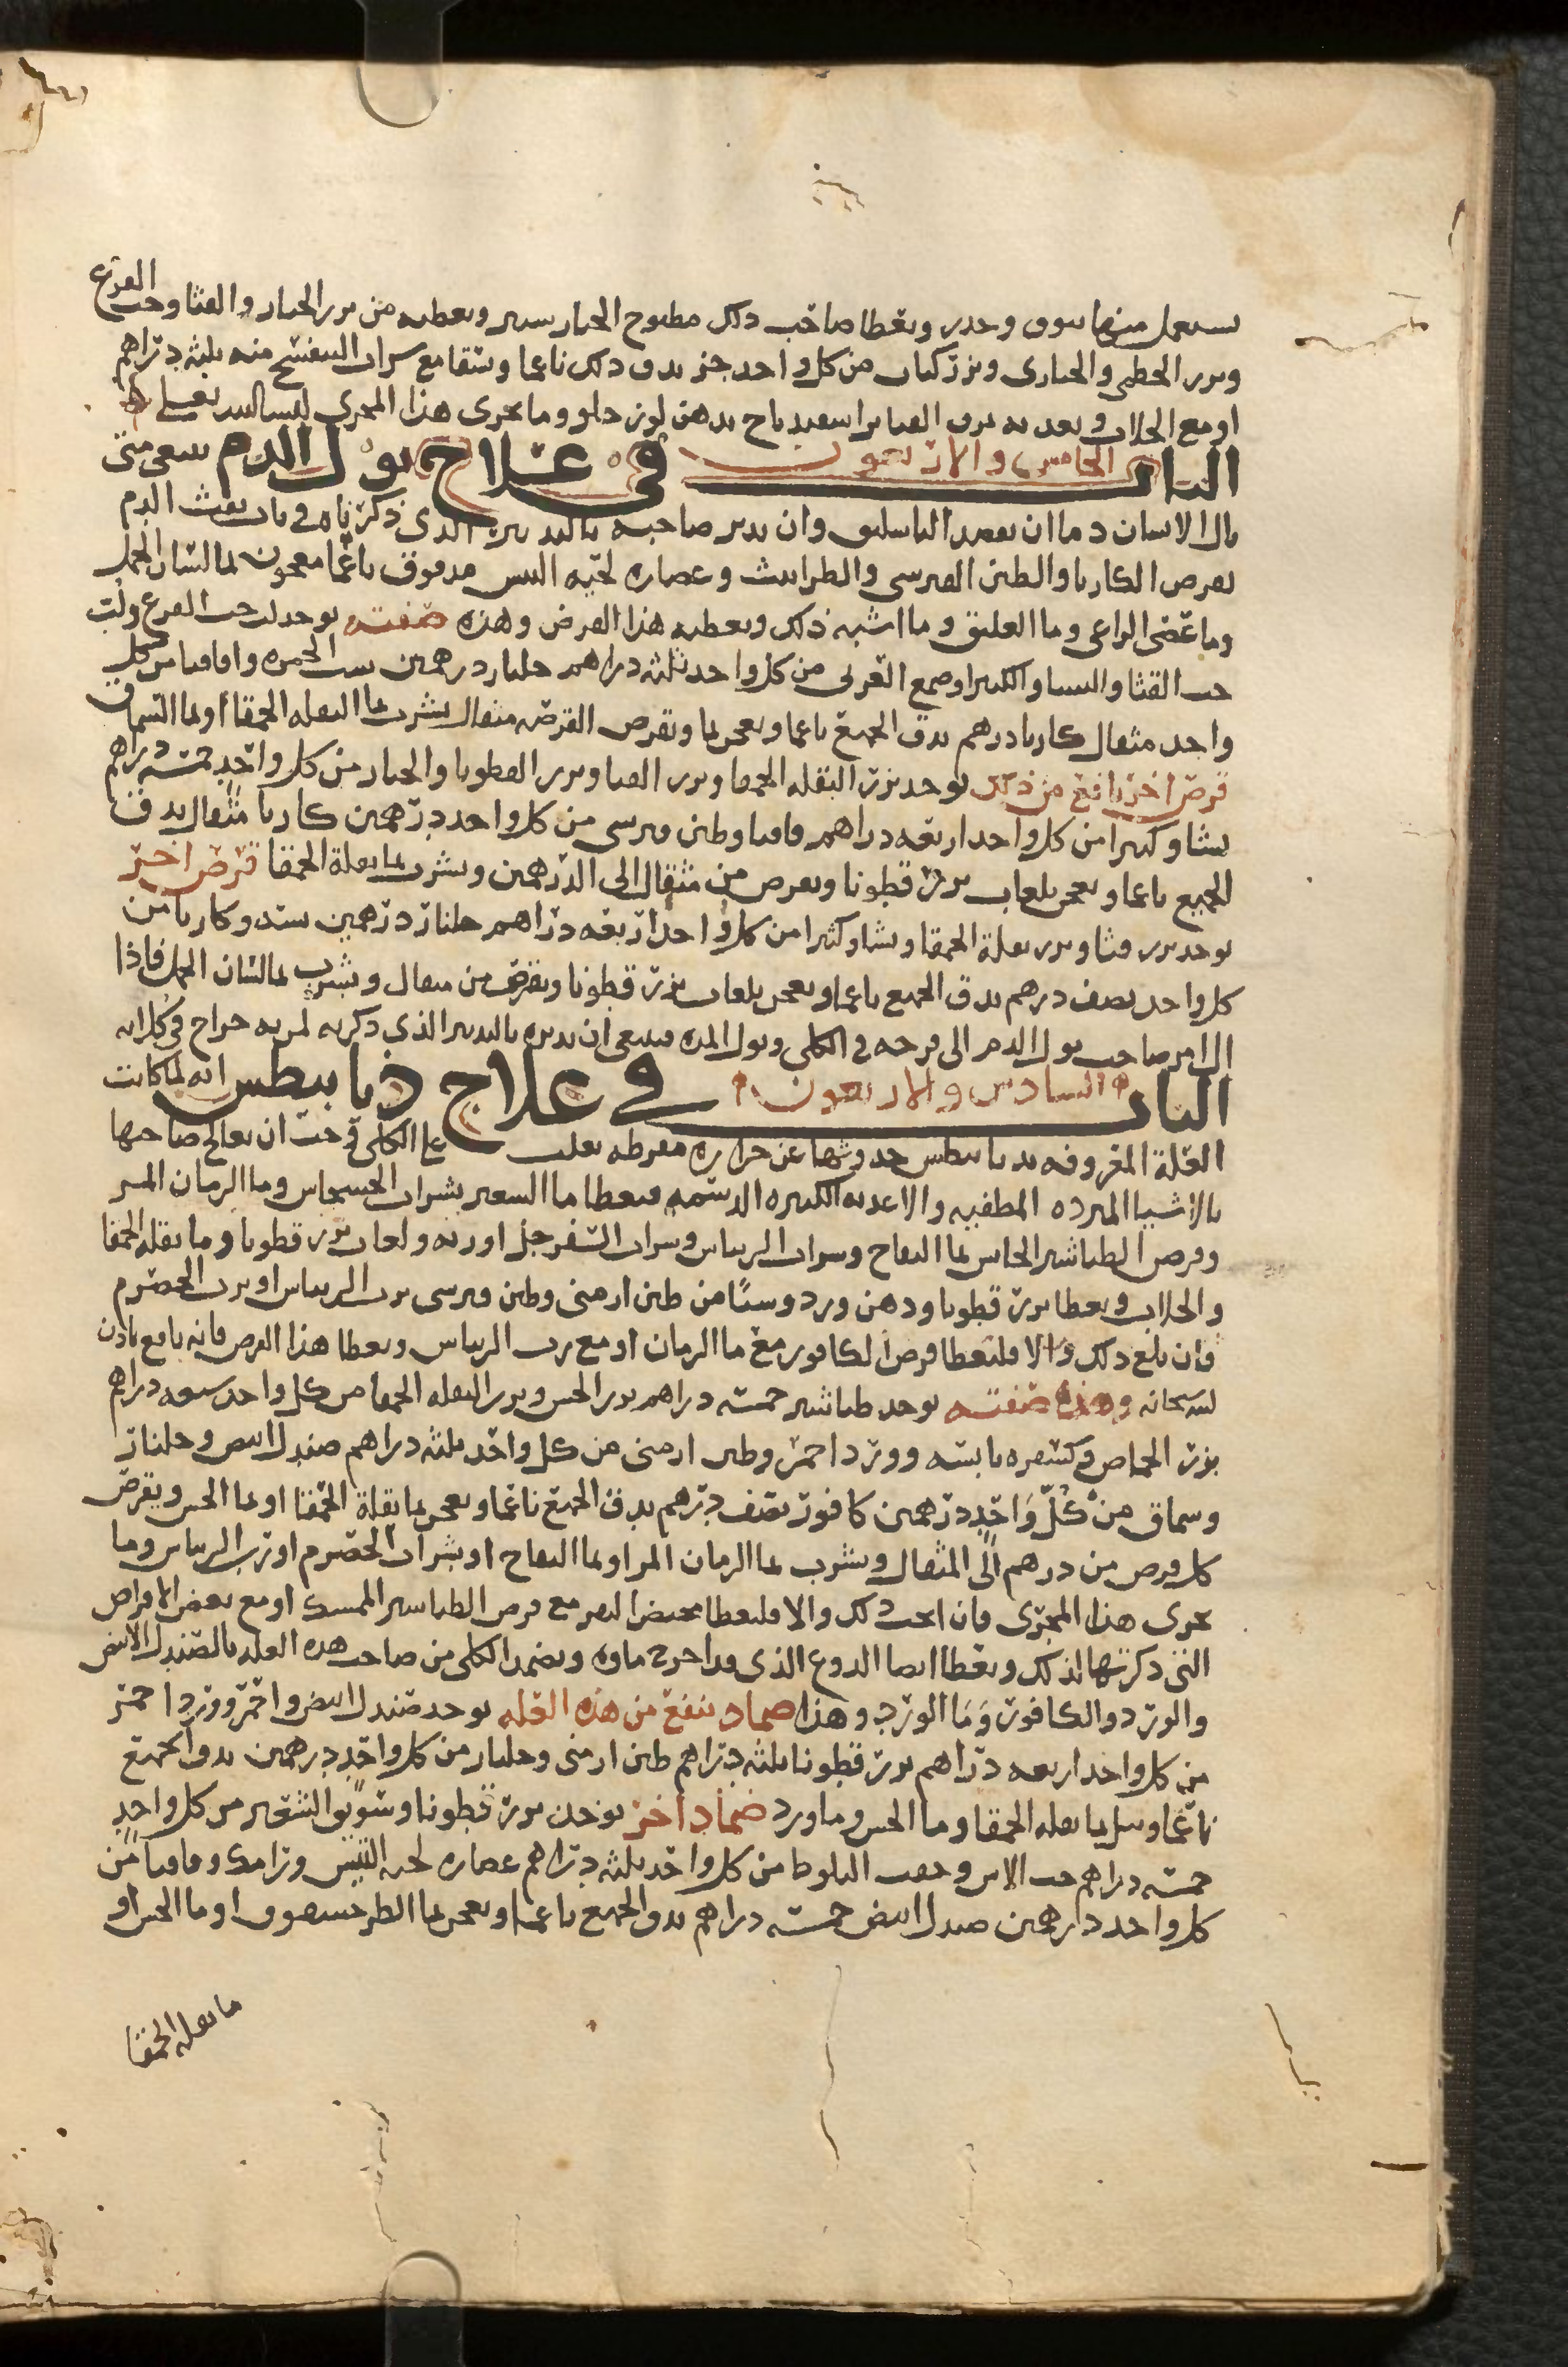 يستعمل منها بتوقي وحذر ويعطا صاحب ذلك مطبوخ الخيار شنبر ويعطيه من بزر الخيار والقثا وحب القرع
وبزر الخطمي والخبازى وبزر كتان من كل واحد جز يدق ذلك ناعما ويسقا مع شراب البنفسج منه ثلثه دراهم
او مع الجلاب ويغديه مرق اسفيدباج بدهن لوز حلو وما يجرى هذا المجرى
الباب الخامس والاربعون في علاج بول الدم ينبغي متى
بال الانسان دما ان يفصد الباسليق وان يدبر صاحبه بالتدبير الذي ذكرناه في باب نفث الدم
بقرص الكاربا والطين القبرسي والطراثيث وعصاره لحيه التيس مدقوق ناعما معجون بما لسان الحمل
وما عصى الراعي وما العليق وما اشبه ذلك ويعطيه هذا القرص وهذه صفته يوخذ لب حب القرع ولب
حب القثا والنشا والكثيرا وصمغ العربي من كل واحد ثلثه دراهم جلنار درهمين واقاقيا من كل
واحد مثقال كاربا درهم يدق الجميع ناعما ويعجن بما ويقرص القرصه مثقال يشرب بما البقله الحمقا او بما السماق
قرص اخر نافع من ذلك يوخذ بزر البقله الحمقا وبزر القثا وبزر القطونا والخيار من كل واحد خمسه دراهم
نشا وكثيرا من كل واحد اربعه دراهم قاقيا وطين قبرسي من كل واحد درهمين كاربا مثقال يدق
الجميع ناعما ويعجن بلعاب بزر قطونا ويقرص من مثقال الى الدرهمين ويشرب بما بقلة الحمقا قرص اخر
يوخذ بزر قثا وبزر بقلة الحمقا ونشا وكثيرا من كل واحد اربعه دراهم جلنار درهمين سندوكاربا من
كل واحد نصف درهم يدق الجميع ناعما ويعجن بلعاب بزر قطونا ويقرص من مثقال ويشرب بما لسان الحمل فاذا
ال امر صاحب بول الدم الى قرحه في الكلى وبول المده فينبغي ان يدبره بالتدبير الذي ذكرته لمن به خراج في كلاه
الباب السادس والاربعون في علاج ذيابيطس انه لما كانت
العلة المعروفه بديابيطس حدوثها عن حراره مفرطه تغلب على الكلى وجب ان يعالج صاحبها
بالاشيا المبرده المطفيه والاغديه الكثيره الدسمه فيعطا ما الشعير بشراب الخشخاش وما الرمان المز
وقرص الطباشير الحابس بما التفاح وشراب الريباس وشراب السفرجل او ربه ولعاب بزر قطونا وما بقله الحمقا
والجلاب ويعطا بزر قطونا ودهن ورد وسيا من طين ارمني وطين قبرسي برب الريباس او برب الحصرم
فان بلغ ذلك والا فليعطا قرص الكافور مع ما الرمان او مع رب الريباس ويعطا هذا القرص فانه نافع باذن
الله سبحانه وهذه صفته يوخذ طباشير خمسه دراهم بزر الخس وبزر البقله الحمقا من كل واحد سبعه دراهم
بزر الحماض وكسفره يابسه وورد احمر وطين ارمني من كل واحد ثلثه دراهم صندل ابيض وجلنار
وسماق من كل واحد درهمين كافور نصف درهم يدق الجميع ناعما ويعجن بما بقلة الحمقا او بما الخس ويقرص
كل قرص من درهم الى المثقال ويشرب بما الرمان المز او بما التفاح او بشراب الحصرم او رب الريباس وما
يجرى هذا المجرى فان انجب ذلك والا فليعطا مخيض البقر مع قرص الطباشير الممسك او مع بعض الاقراص
التي ذكرتها لذلك ويعطا ايضا الدوغ الذي قد اخرج ماوه ويضمد الكلى من صاحب هذه العله بالصندل الابيض
والورد والكافور وما الورد وهذا ضماد ينفع من هذه العله يوخذ صندل ابيض واحمر وورد احمر
من كل واحد اربعه دراهم بزر قطونا ثلثه دراهم طين ارمني وجلنار من كل واحد درهمين يدق الجميع
ناعما ويبل بما بقله الحمقا وما الخس وما ورد ضماد اخر يوخذ بزر قطونا وسويق الشعير من كل واحد
خمسه دراهم حب الاس وجفت البلوط من كل واحد ثلثه دراهم عصاره لحيه التيس ورامك وقاقيا من
كل واحد درهمين صندل ابيض خمسه دراهم يدق الجميع ناعما ويعجن بما الطرخشقوق او ما الخس او
ما بقله الحمقا